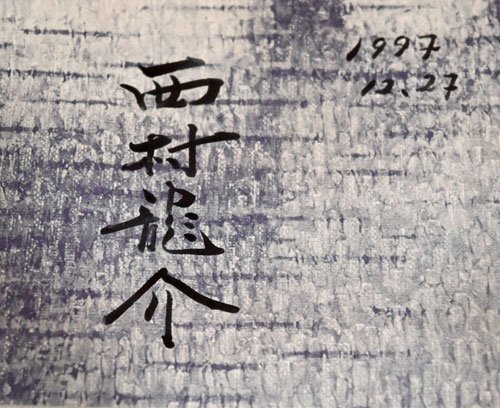 1997
12.27
西村龍介